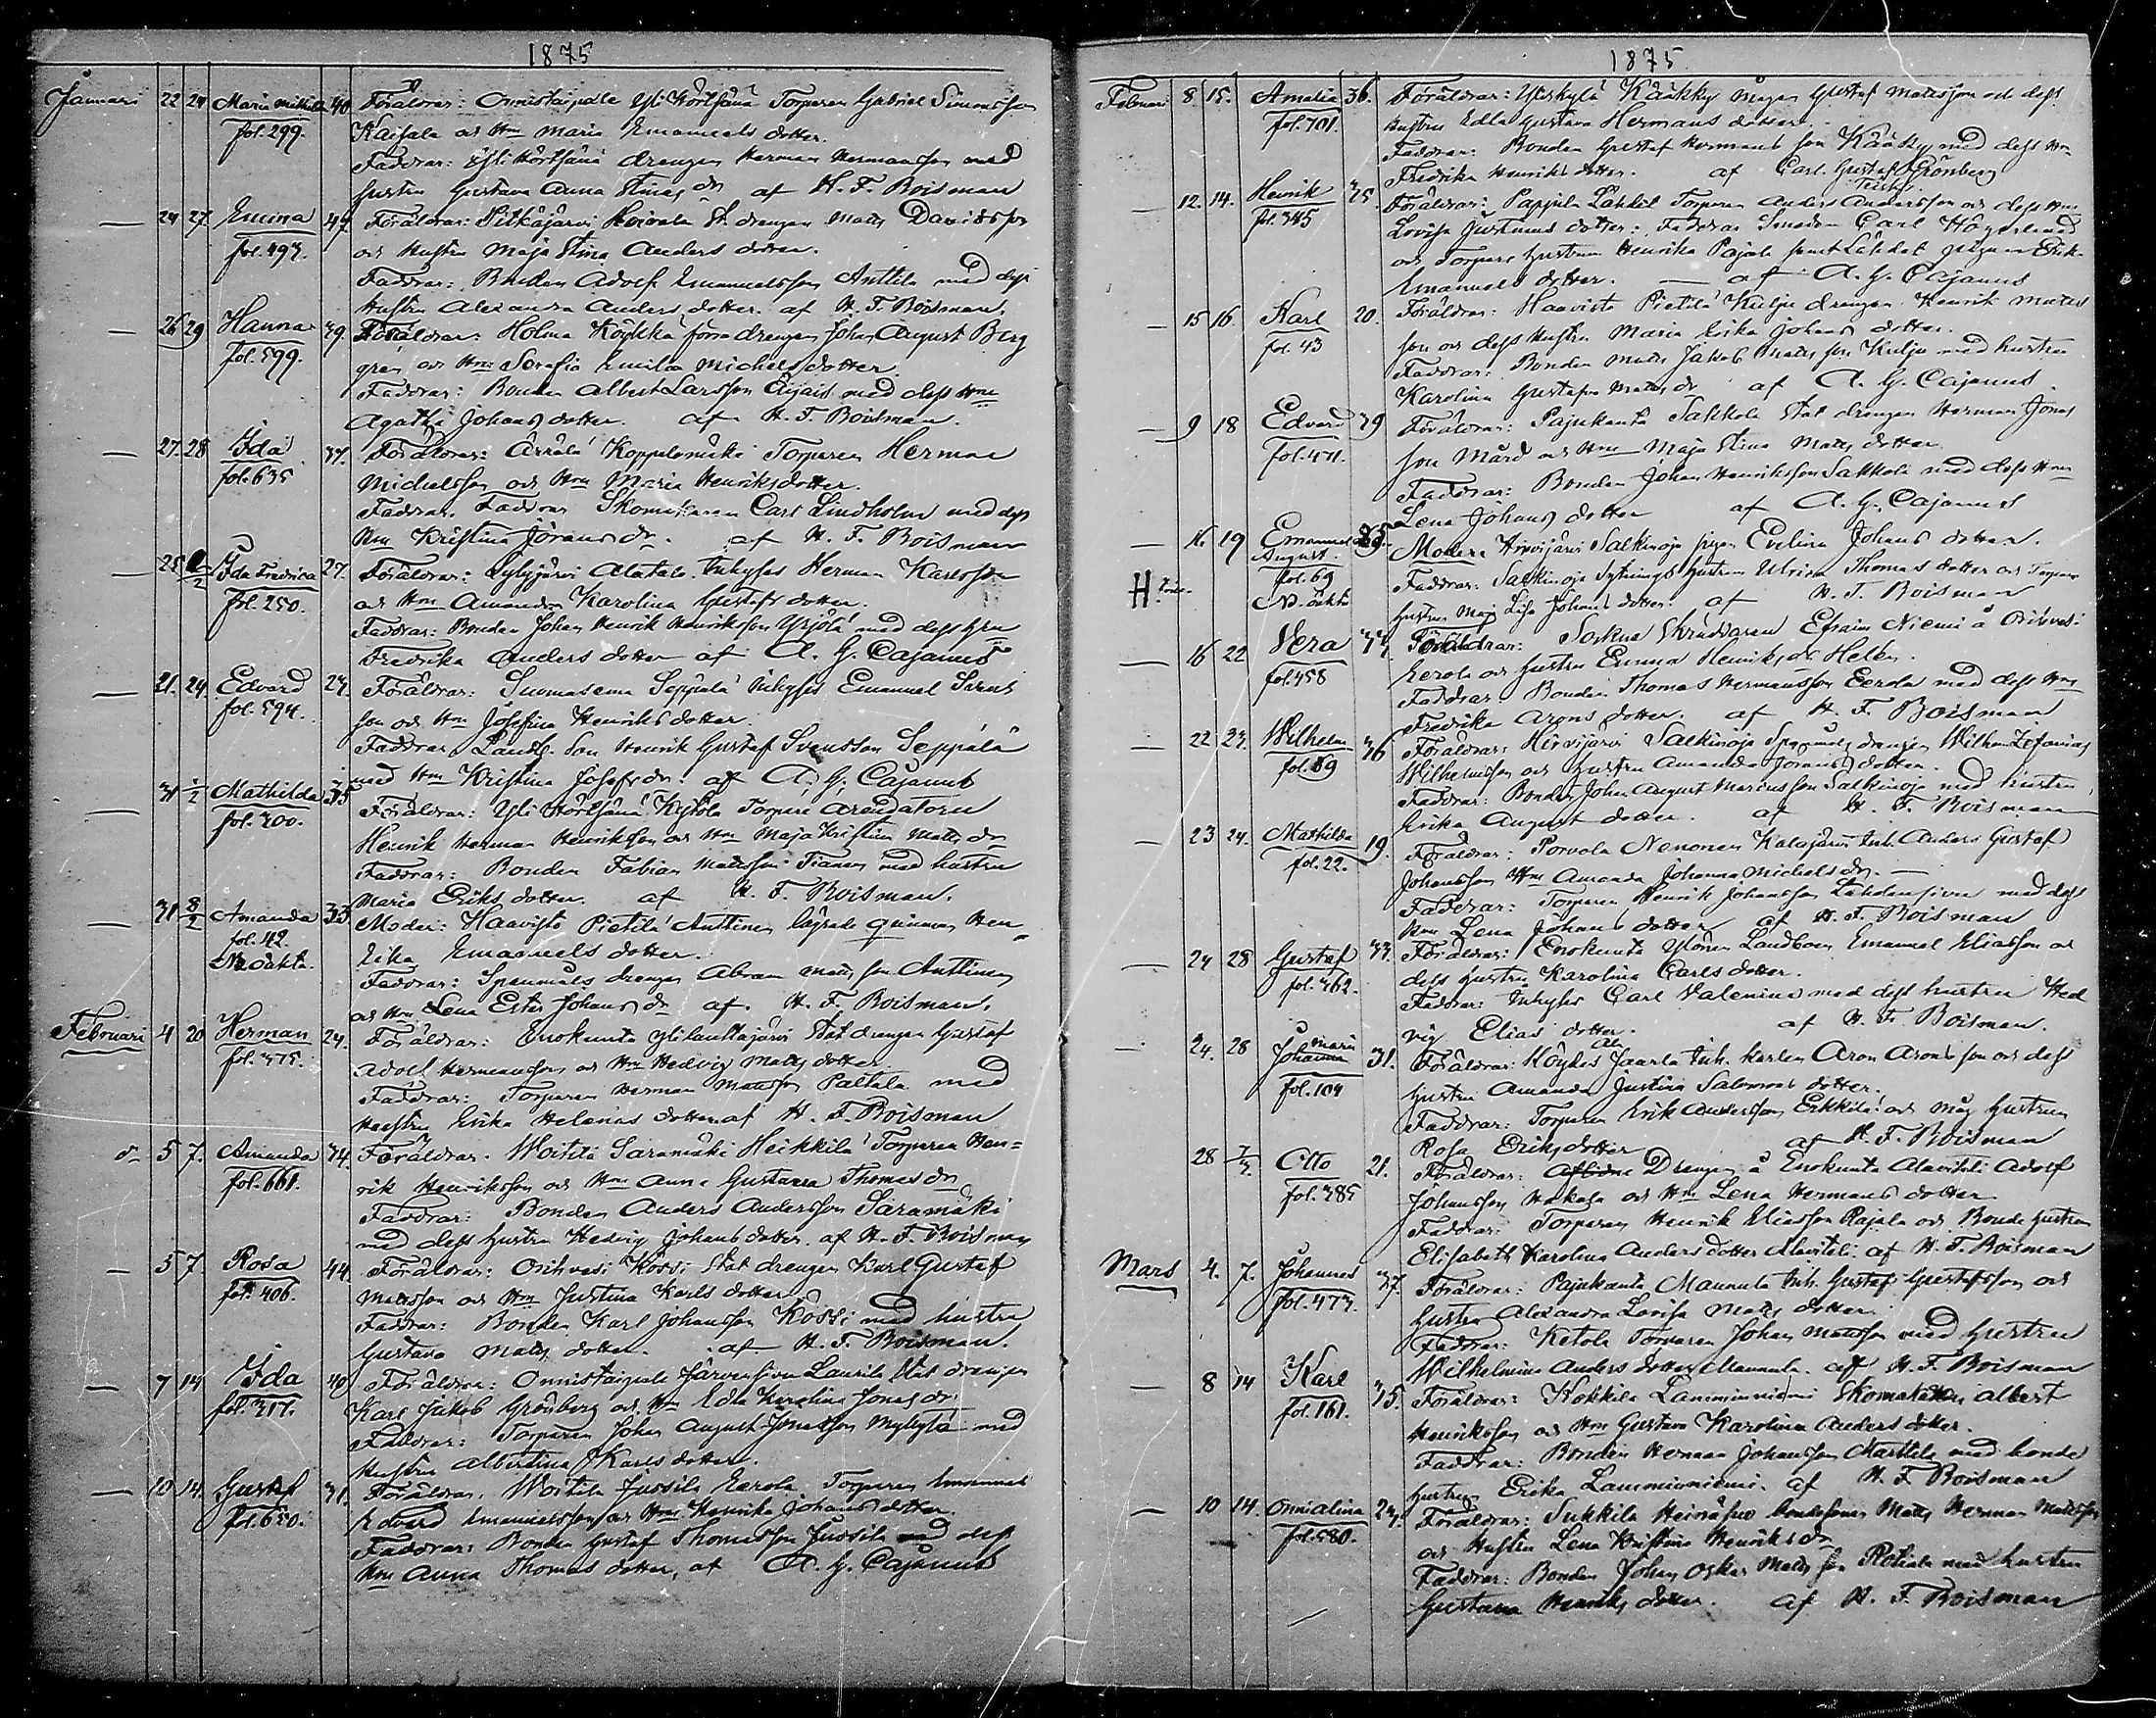 1875
Januari 22 24 Maria Mathilda 40 Föräldrar: Onnistaipale Yli Hörtsänä Torparen Gabriel Simonsson
fol. 299. Kaisala och Hru Maria Emanuels dotter.
Faddrar: Yli Hörtsänä drengen Herman Hermansson med
hustru Gustava Anna Stina dr af H. F. Boisman
— 24 27 Emina 47 Föräldrar: Pitkäjärvi Hoivala St. drengen Matts Davidsson
fol. 493. och hustru Maja Stina Anders dotter.
Faddrar: Bonden Adolf Emanuelsson Anttila med dess
Hustru Alexandra Anders dotter. af H. F. Boisman.
— 26 29 Hanna 39. Föräldrar: Holma Köykkä förra drengen Johan August Berg
fol. 599. gren och Hru Serafia Emilia Michelsdotter.
Faddrar: Bonden Albert Larsson Äijais med dess Hru
Agatha Johans dotter. af H. F. Boisman.
— 27. 28 Ida 37. Föräldrar: Ärrälä Koppelomäki Torparen Herman
fol. 635 Michelsson och Hru Maria Henriksdotter.
Faddrar. Faddrar Skomakaren Carl Lindholm med dess
Hru Kristina Jörans dr. af H. F. Boisman
— 25 2/2 Ida Fredrica 27. Föräldrar: Sylyjärvi Alatalo Inhyses Herman Karlsson
fol. 250. och Hru Amanda Karolina Gustafs dotter.
Faddrar: Bonden Johan Henrik Henriksson Yrjölä med dess Hru
Fredrika Anders dotter af A. G. Cajanus
— 21. 24. Edvard 27. Föräldrar: Suomasema Seppälä Inhyses Emanuel Sven
fol. 594. son och Hru Josefina Henriks dotter.
Faddrar Landb. Son Henrik Gustaf Svensson Seppälä
med Hru Kristina Josefs dr. af A. G. Cajanus
— 31 1/2 Mathilda 35 Föräldrar: Yli Hörtsänä Torpare arendatorn
fol. 300. Henrik Herman Henriksson och Hru Maja Kristina Matts dr
Faddrar: Bonden Fabian Mattsson Tianen med hustru
Maria Eriks dotter. af H. F. Boisman.
— 31 8/2 Amanda 33 Moder: Haavisto Pietilä Anttinen lägrade qvinnan Hen-
fol. 42. rika Emanuels dotter.
No oäkta. Faddrar: Spanmåls drengen Abram Matts son Anttinen
och Hru Lena Ester Johans dr af H. F. Boisman.
Februari 4 20 Herman 24. Föräldrar: Enokunta Ylihanhajärvi Stat drengen Gustaf
fol. 375. Adolf Hermansson och Hru Hedvig Matts dotter
Faddrar: Torparen Herman Mattsson Paltala med
hustru Erika Helenas dotter. af H. F. Boisman
d– 5 7. Amanda 34. Föräldrar. Woitila Saramäki Heikkilä Torparen Hen=
fol. 661. rik Henriksson och Hru Anna Gustava Thomas dr
Faddrar: Bonden Anders Andersson Saramäki
med dess hustru Hedvig Johans dotter. af H. F. Boisman
— 5 7 Rosa 44. Föräldrar: Orihvesi Kossi Stat drengen Karl Gustaf
fol. 406. Mattsson och Hru Justina Karls dotter
Faddrar: Bonden Karl Johansson Kossi med hustru
Gustava Matts dotter. af H. F. Boisman.
— 7 14 Ida 40 Föräldrar: Onnistaipale Järvensivu Laurila Stat drengen
fol. 317. Karl Jakob Grönberg och Hru Edla Karolina Jonas dr
Faddrar: Torparen Johan August Jonasson Myllylä med
hustru Albertina Karls dotter.
— 10 14. Gustaf 31. Föräldrar. Woitila Jussila Eerola Torparen Emanuel
fol. 650. Edvard Emanuelsson och Hru Henrika Johans dotter.
Faddrar: Bonden Gustaf Thomasson Jussila med dess
Hru Anna Thomas dotter, af A. G. Cajanus
1875
Februari 8 15. Amalia 36. Föräldrar: Yliskylä Kääkky mågen Gustaf Mattsson och dess
fol. 701. hustru Edla Gustava Hermans dotter.
Faddrar: Bonden Gustaf Hermans son Kääky med dess Hru
Fredrika Henriks dotter. af Carl Gustaf Grönberg
— 12. 14. Henrik 25. Föräldrar: Pappila Lahdet Torparen Anders Andersson och dess Hru
fol. 345 Lovisa Gustavus dotter: Faddrar Smeden Carl Högerlund
och Torpare hustrun Henrika Pajala samt Lähdet pigan Erik
Emanuels dotter. — af A. G. Cajanus
— 15 16. Karl 20. Föräldrar: Haavisto Pietilä Kulju drengen Henrik Matts
fol. 43 son och dess hustru Maria Erika Johans dotter.
Faddrar: Bonden Matts Jakob Matts son Kulju med hustru
Karolina Gustafva Matts dr af A. G. Cajanus.
— 9 18 Edvard 39 Föräldrar: Pajukanta Sakkola Stat drengen Herman Jonas
fol. 471. son Mård och Hru Maja Stina Matts dotter
Faddrar: Bonden Johan Henriksson Sakkola med dess Hru
Lena Johans dotter af A. G. Cajanus
— 16. 19 Emanuel August. 25. Modern Hirvijärvi Salkinoja pigan Evelina Johans dotter.
fol. 69 Faddrar: Salkinoja Sytnings hustrun Ulrica Thomas dotter och Torpare
No oäkta hustrun Maj Lisa Johans dotter. af H. F. Boisman
— 16 22 Vera 44. Föräldrar: Sockne Skräddaren Efraim Niemi å Orihvesi
fol. 458 Eerola och hustru Emma Henriks dr Hellen.
Faddrar. Bonden Thomas Hermansson Eerola med dess Hru
Fredrika Arons dotter. af H. F. Boisman
— 22 27. Wilhelm 36 Föräldrar: Hirvijärvi Salkinoja Spanmåls drengen Wilhelm Zefanias
fol. 69 Wilhelmsson och hustru Amanda Jöransdotter.
Faddrar: Bonden Johan August Mariusson Salkinoja med hustru
Erika August dotter. af H. F. Boisman
— 23 24. Mathilda 19. Föräldrar: Porvola Nenonen Kalajärvi Inh. Anders Gustaf
fol. 22. Johansson Hru Amanda Johanna Michels dr. —
Faddrar: Torparen Henrik Johansson Lahdensivu med dess
Hru Lena Johans dotter af H. F. Boisman
— 24 28 Gustaf 33. Föräldrar: Enokunta Ylönen Landbon Emanuel Eliasson och
fol. 362. dess hustru Karolina Carls dotter.
Faddrar: Inhyses Carl Valenius med dess hustru Hed
vig Elias dotter. af H. F. Boisman.
— 24. 28 Maria Johanna 31. Föräldrar: Köydes Ala Jaarla Inh. karlen Aron Arons son och dess
fol. 104 hustru Amanda Justina Salomons dotter.
Faddrar: Torparen Erik Andersson Erkkilä och måg hustrun
Rosa Eriks dotter af H. F. Boisman
28 7/3. Otto 21. Föräldrar: Aflidne Drengen å Enokunta Alavitili Adolf
fol. 385 Johansson Hakala och Hru Lena Hermans dotter
Faddrar: Torparen Henrik Eliasson Rajala och Bonde hustrun
Elisabeth Karolina Anders dotter Alavitili: af H. F. Boisman
Mars 4. 7. Johannes 37. Föräldrar: Pajukanta Mannula Inh. Gustaf Gustafsson och
fol. 473. hustru Alexandra Lovisa Matts dotter.
Faddrar: Ketola Torparen Johan Mattsson med hustru
Wilhelmina Anders dotter Mannula. af H. F. Boisman
— 8 14 Karl 35. Föräldrar: Kokkila Lamminniemi Skomakaren Albert
fol. 161. Henriksson och Hru Gustava Karolina Anders dotter.
Faddrar: Bonden Herman Johansson Marttila med bonde
hustrun Erika Lamminniemi. af H. F. Boisman
— 10 14. Onnialina 27. Föräldrar: Sukkila Heinäsuo bondesonen Matts Herman Mattsson
fol. 580. och hustru Lena Kristina Henriks dr
Faddrar: Bonden Johan Oskar Matts son Rotiala med hustru
Gustava Henriks dotter. af H. F. Boisman